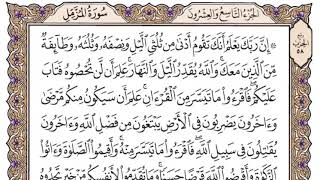 الجزء التاسع والعشرون سورة المزمل
ربع الحزب ٥٨
۞ إِنَّ رَبَّكَ يَعْلَمُ أَنَّكَ تَقُومُ أَدْنَىٰ مِن ثُلُثَيِ ٱلَّيْلِ وَنِصْفَهُۥ وَثُلُثَهُۥ وَطَآئِفَةٌ
مِّنَ ٱلَّذِينَ مَعَكَ ۚ وَٱللَّهُ يُقَدِّرُ ٱلَّيْلَ وَٱلنَّهَارَ ۚ عَلِمَ أَن لَّن تُحْصُوهُ فَتَابَ
عَلَيْكُمْ ۖ فَٱقْرَءُوا۟ مَا تَيَسَّرَ مِنَ ٱلْقُرْءَانِ ۚ عَلِمَ أَن سَيَكُونُ مِنكُم مَّرْضَىٰ
وَءَاخَرُونَ يَضْرِبُونَ فِى ٱلْأَرْضِ يَبْتَغُونَ مِن فَضْلِ ٱللَّهِ ۙ وَءَاخَرُونَ
يُقَٰتِلُونَ فِى سَبِيلِ ٱللَّهِ ۖ فَٱقْرَءُوا۟ مَا تَيَسَّرَ مِنْهُ ۚ وَأَقِيمُوا۟ ٱلصَّلَوٰةَ وَءَاتُوا۟
ٱلزَّكَوٰةَ وَأَقْرِضُوا۟ ٱللَّهَ قَرْضًا حَسَنًا ۚ وَمَا تُقَدِّمُوا۟ لِأَنفُسِكُم مِّنْ خَيْرٍ تَجِدُوهُ